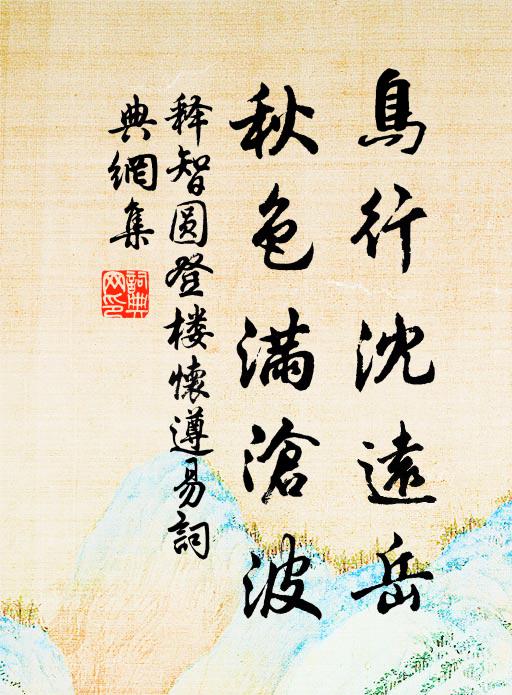 鳥行沈遠岳
秋色滿滄波
释智圆登楼懷遵易詞
典網集
詞典網印